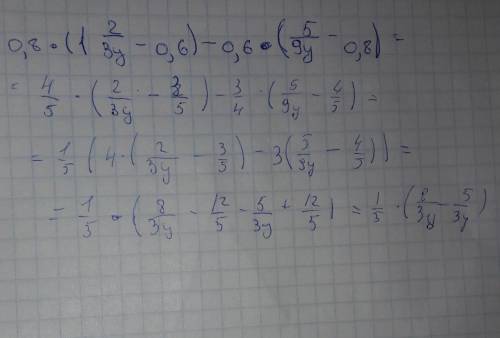 0,8 · (1 2/3y - 0,6) - 0,6 · (5/9y - 0,8) =
= 4/5 · (2/3y - 3/5) - 3/4 · (5/9y - 4/5) =
= 1/5 (4 · (2/3y - 3/5) - 3(5/9y - 4/5)) =
= 1/5 · (8/3y - 12/5 - 5/3y + 12/5) = 1/5 · (8/3y - 5/3y)